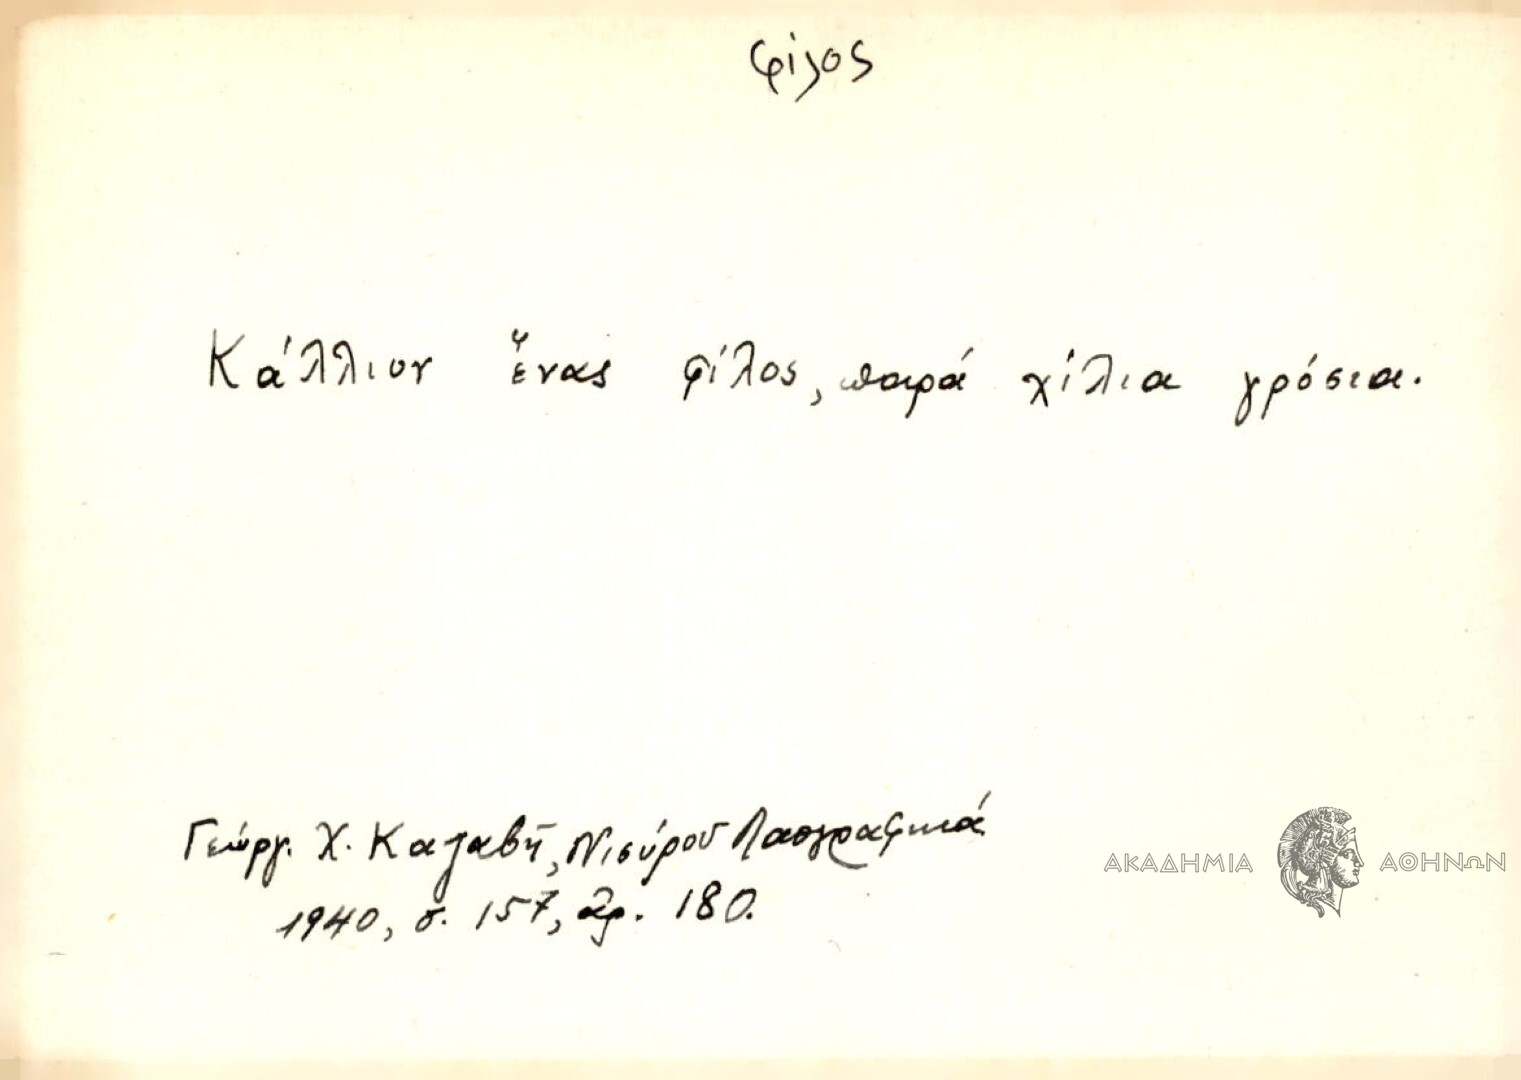 φίλος
Κάλλιον ἕνας φίλος, παρά χίλια γρόσια.
Γεώργ. Χ. Καζαβῆ, Νισύρου Λαογραφικά
1940, σ. 157, ἀρ. 180.
ΑΚΑΔΗΜΙΑ ΑΘΗΝΩΝ